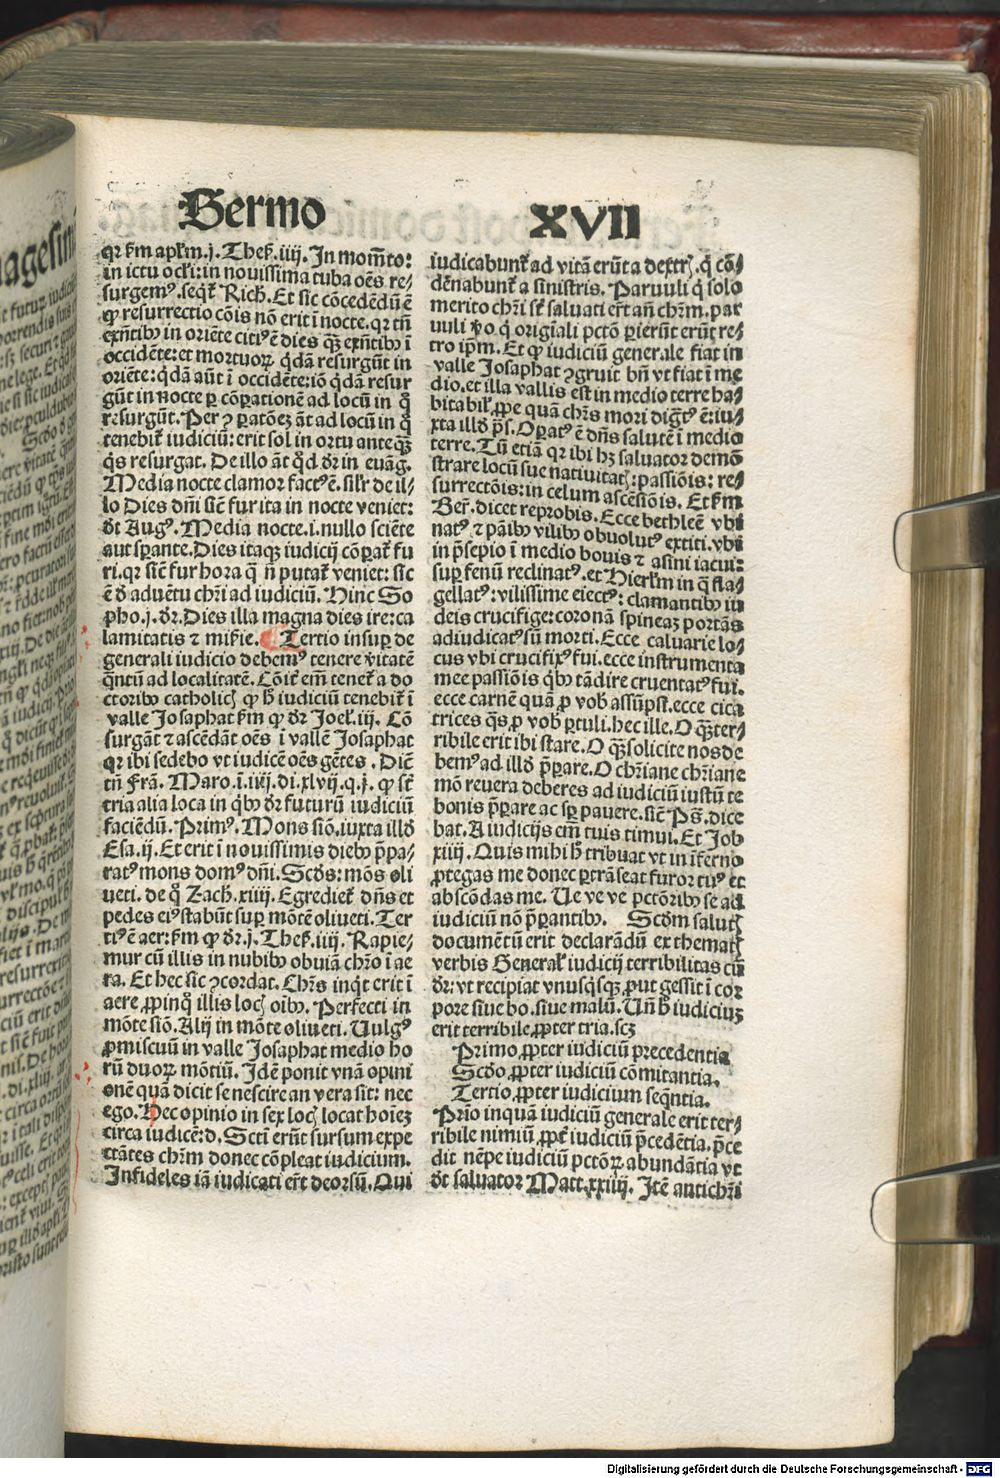 Sermo XVII
qꝛ s̄m apl̄m.j. Thes̄.iiij. In mom̄to:
in ictu oc̄li: in nouissima tuba oēs re⸗
surgemꝰ. seqt̄ Rich̄. Et sic cōcedēdū ē
ꝙ resurrectio cōis nō erit ī nocte. qꝛ tn̄
exn̄tibꝫ in oriēte citiꝰ ē dies qꝫ̄ exn̄tibꝫ ī
occidēte: et mortuoꝝ q̇dā resurgūt in
oriēte: q̇dā aūt ī occidēte: iō q̇dā resur
gūt in nocte ꝑ cōꝑationē ad locū in q̊
resurgūt. Per ꝯꝑatōeꝫ āt ad locū in q̊
tenebit̄ iudiciū: erit sol in ortu anteqꝫ̄
q̇s resurgat. De illo āt qd̄ dr̄ in euāg.
Media nocte clamor factꝰ ē. silr̄ de il⸗
lo Dies dn̄i sic̄ fur ita in nocte veniet:
dt̄ Augꝰ. Media nocte.i. nullo sciēte
aut sꝑante. Dies itaqꝫ iudicij cōꝑat̄ fu
ri. qꝛ sic̄ fur hora q̄ n̄ putat̄ veniet: sic
ē d̄ aduētu chr̄i ad iudiciū. Hinc So
pho.j. dr̄. Dies illa magna dies ire: ca
lamitatis ⁊ mis̄ie. Tertio insuꝑ de
generali iudicio debemꝰ tenere v̄itatē
q̄ntū ad localitatē. Cōit̄ em̄ tenet̄ a do
ctoribꝫ catholicꝭ ꝙ h̄ iudiciū tenebit̄ ī
valle Josaphat s̄m ꝙ dr̄ Joel̄.iij. Cō
surgāt ⁊ ascēdāt oēs ī vallē Josaphat
qꝛ ibi sedebo vt iudicē oēs gētes. Dic̄
tn̄ Frā. Maro.ī.iiij.di.xlvij.q.j. ꝙ st̄
tria alia loca in qͥbꝫ dr̄ futurū iudiciū
faciēdū. Primꝰ. Mons siō. iuxta illd̄
Esa.ij. Et erit ī nouissimis diebꝫ p̄pa⸗
ratꝰ mons domꝰ dn̄i. Scds̄: mōs oli
ueti. de q̊ Zach̄.xiiij. Egrediet̄ dn̄s et
pedes eiꝰ stabūt suꝑ mōtē oliueti. Ter
tiꝰ ē aer: s̄m ꝙ dr̄.j. Thes̄.iiij. Rapie⸗
mur cū illis in nubibꝫ obuiā chr̄o ī ae
ra. Et hec sic ꝯcordat. Chr̄s inqt̄ erit ī
aere ꝓpinqͦ illis locꝭ oībꝫ. Perfecti in
mōte siō. Alij in mōte oliueti. Uulgꝰ
ꝓmiscuū in valle Josaphat medio ho
rū duoꝝ mōtiū. Idē ponit vnā opini
onē quā dicit se nescire an vera sit: nec
ego. Hec opinio in sex locꝭ locat hoīeꝫ
circa iudicē:d. Scti erūt sursum expe
ctātes chr̄m donec cōpleat iudicium.
Infideles iā iudicati er̄t deorsū. Qui
iudicabunt̄ ad vitā erūt a dextrꝭ. q̄ cō⸗
dēnabunt̄ a sinistris. Paruuli q̄ solo
merito chr̄i st̄ saluati er̄t añ chr̄m. par
uuli vo q̄ origīali pctō ꝑierūt erūt re⸗
tro ip̄m. Et ꝙ iudiciū generale fiat in
valle Josaphat ꝯgruit bn̄ vt fiat ī me
dio. et illa vallis est in medio terre ha⸗
bitabil̄. ꝓpe quā chr̄s mori dīgtꝰ ē: iu⸗
xta illd̄ ps̄. Oꝑatꝰ ē dn̄s salutē ī medio
terre. Tū etiā qꝛ ibi hꝫ saluator demō
strare locū sue natiuitatꝭ: passiōis: re⸗
surrectōis: in celum ascēsiōis. Et s̄m
Ber̄. dicet reprobis. Ecce bethleē vbi
natꝰ ⁊ pānibꝫ vilibꝫ obuolutꝰ extiti. vbi
in p̄sepio ī medio bouis ⁊ asini iacui:
suꝑ fenū reclinatꝰ. et Hierlm̄ in q̄ fla⸗
gellatꝰ: vilissime eiectꝰ: clamantibꝫ iu
deis crucifige: coronā spineaꝫ portās
adiudicatꝰ sū morti. Ecce caluarie lo⸗
cus vbi crucifixꝰ fui. ecce instrumenta
mee passiōis qͥbꝫ tādire cruentatꝰ fui.
ecce carnē quā ꝓ vob̄ assūpsi. ecce cica
trices q̄s ꝓ vob̄ ꝑtuli. hec ille. O qꝫ̄ ter⸗
ribile erit ibi stare. O qꝫ̄ solicite nos de
bemꝰ ad illd̄ p̄ꝑare. O chr̄iane chr̄iane
mō reuera deberes ad iudiciū iustū te
bonis p̄ꝑare ac sꝑ pauere. sic̄ Ps̄. dice
bat. A iudicijs em̄ tuis timui. Et Job
xiiij. Quis mihi h̄ tribuat vt in īferno
ꝓtegas me donec ꝑtrāseat furor tuꝰ et
abscōdas me. Ue ve ve pctōribꝫ se ad
iudiciū nō p̄ꝑantibꝫ. Scdm̄ salutꝭ
documētū erit declarādū ex thematꝭ
verbis General̄ iudicij terribilitas cū
dr̄: vt recipiat vnusq̇sqꝫ ꝓut gessit ī cor
pore siue bo. siue malū. Un̄ h̄ iudiciuꝫ
erit terribile ꝓpter tria.scꝫ
Primo ꝓpter iudiciū precedentia
Scdo ꝓpter iudiciū cōmitantia.
Tertio ꝓpter iudicium seqn̄tia.
Prīo inquā iudiciū generale erit ter⸗
ribile nimiū ꝓpt̄ iudiciū p̄cedētia. p̄ce
dit nēpe iudiciū pctōꝝ abundātia vt
dt̄ saluator Matt.xxiiij. Itē antichr̄i
Digitalisierung gefördert durch die Deutsche Forschungsgemeinschaft - DFG